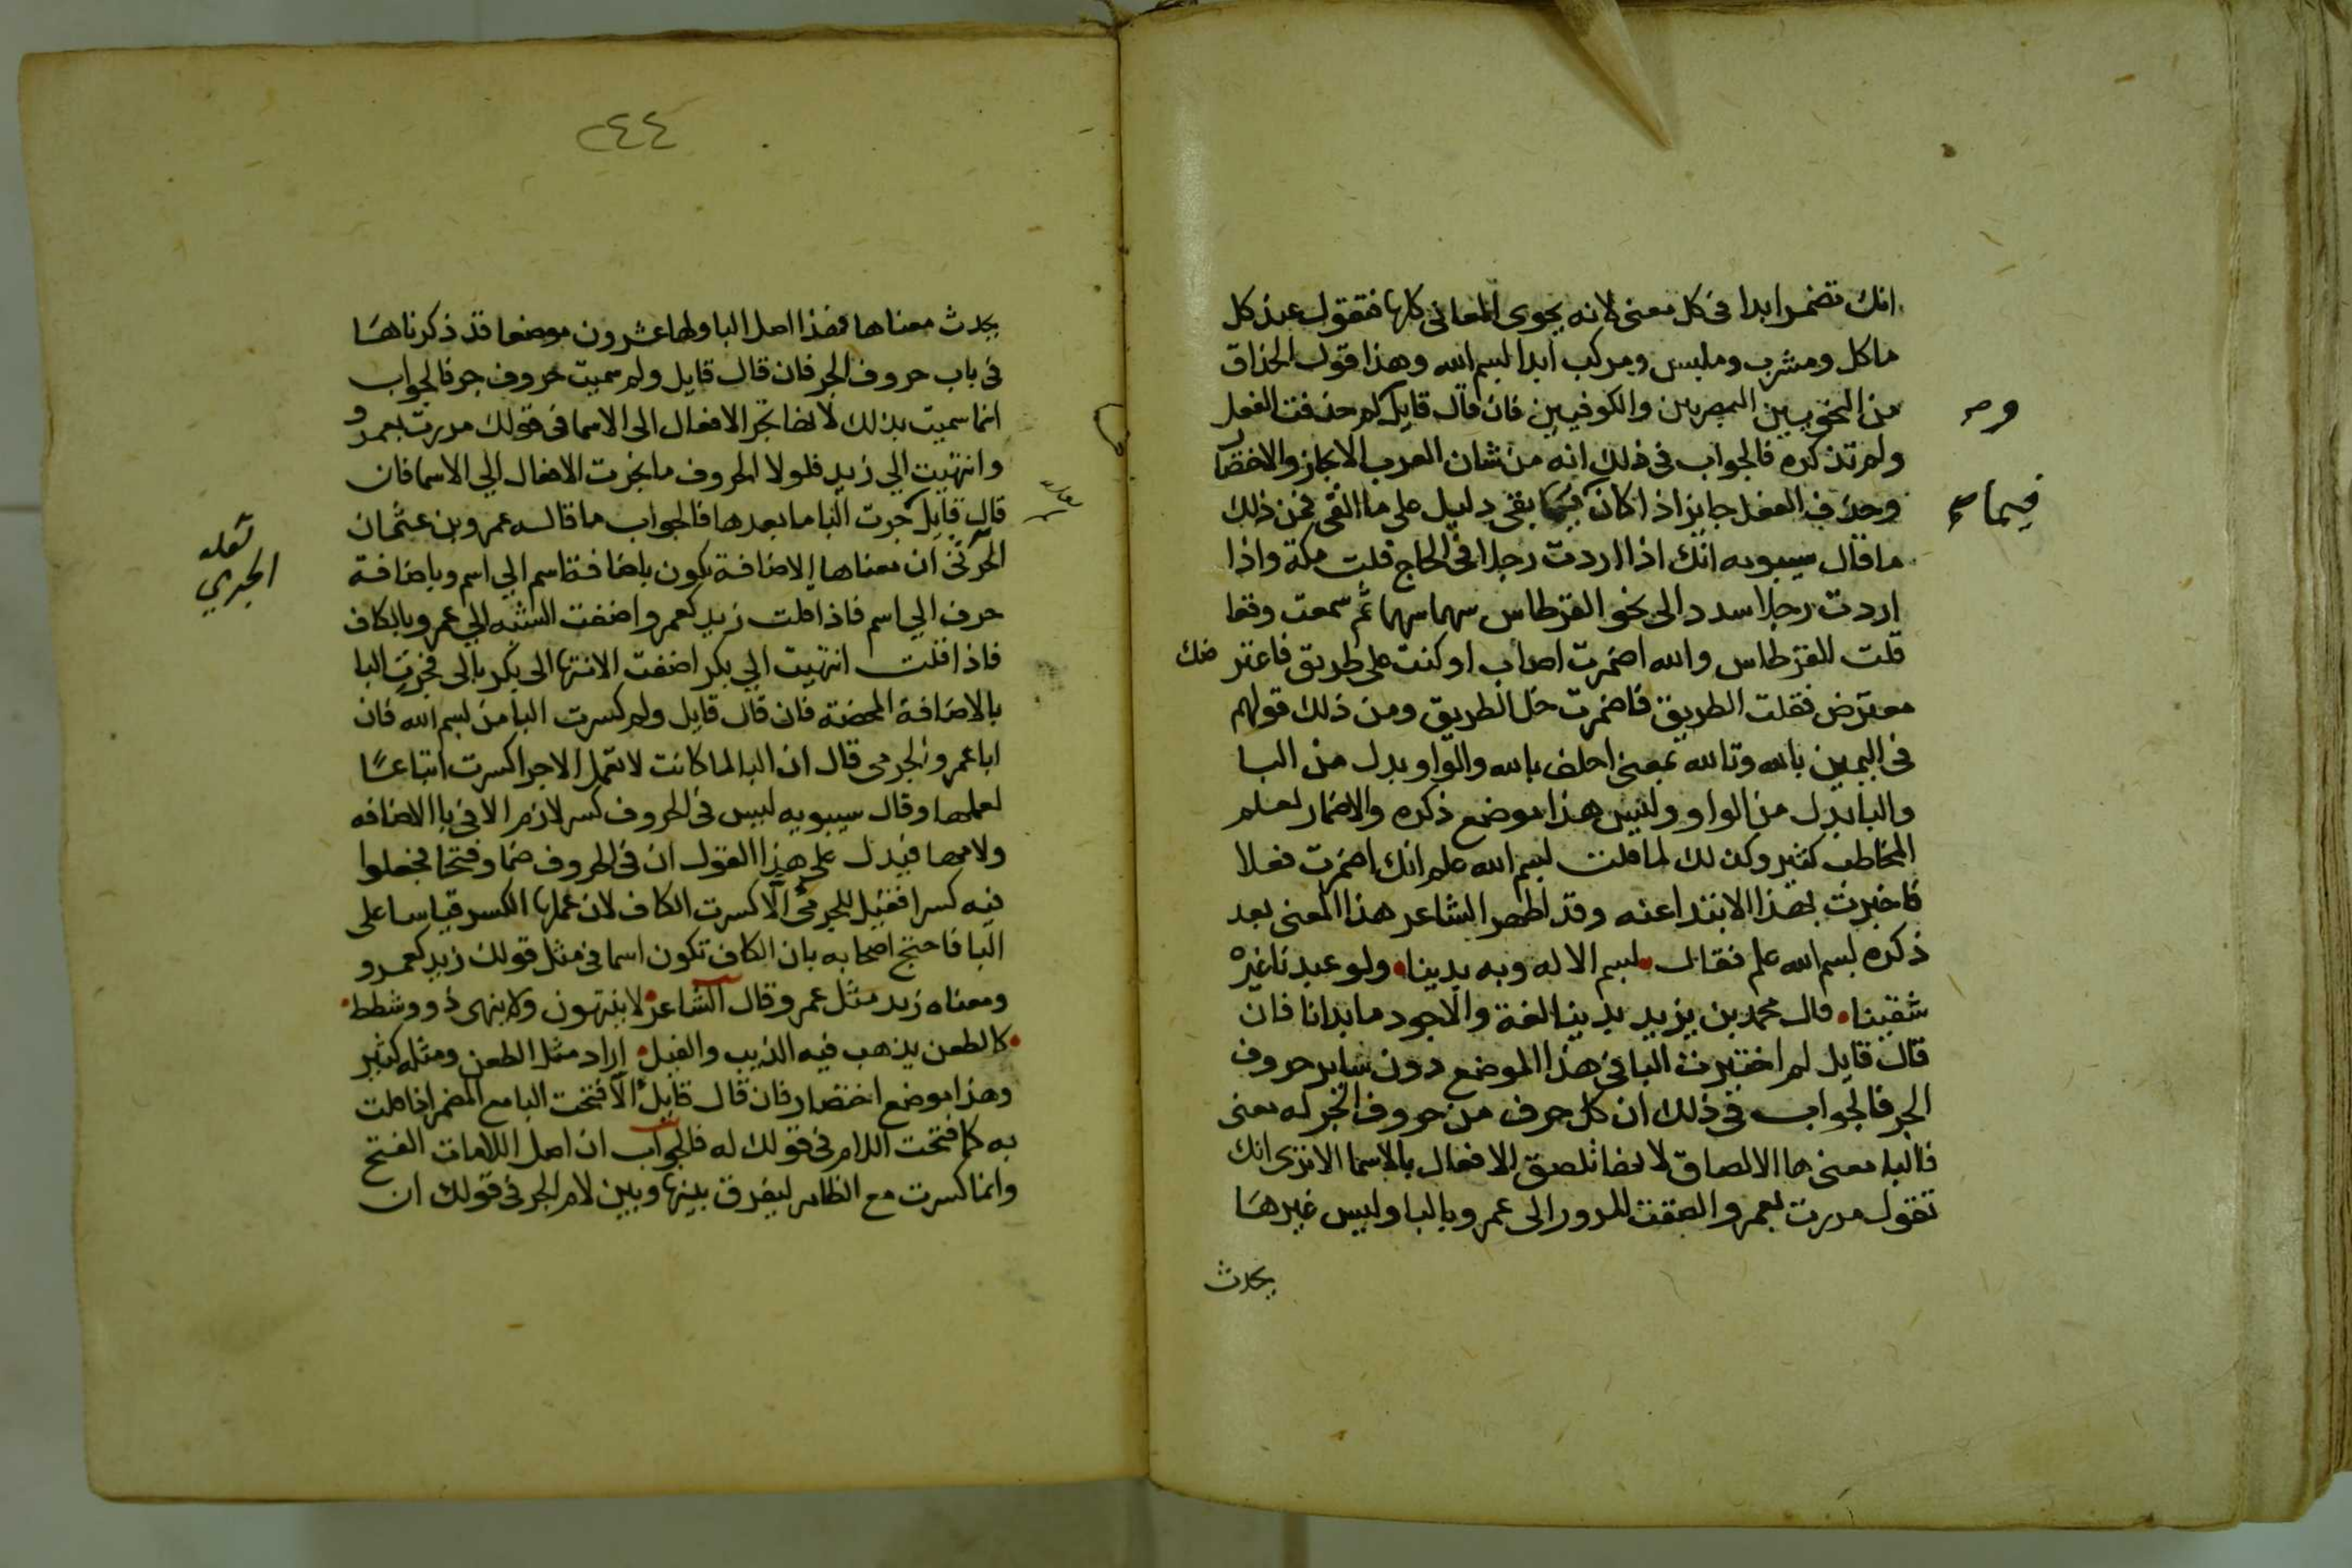 انك تضمر ابدا فى كل معنى لانه يحوى المعانى كلها فتقول عند كل
ماكل ومشرب وملبس ومركب ابدا بسم الله وهذا قول الحذاق
من النحويين البصريين والكوفيين فان قال قايل لم حذفت الفعل
ولم تذكره فالجواب فى ذلك انه من شان العرب الايجاز والاختصار
وحذف الفعل جايز اذا كان فيما بقى دليل على ما القى فمن ذلك
فيما صح
ما قال سيبويه انك اذا اردت رجلا فى الحاج قلت مكة واذا
اردت رجلا سدد الى نحو القرطاس سهما سهما ثم سمعت وقعا
قلت القرطاس والله اضمرت اصاب او كنت على طريق فاعتر ضك
معترض فقلت الطريق فاضمرت خل الطريق ومن ذلك قولهم
فى اليمين بالله وتالله بمعنى احلف بالله والواو بدل من البا
والبا بدل من الواو وليس هذا موضع ذكره والاضمار لعلم
المخاطب كثير وكذلك لما قلت بسم الله علم انك اضمرت فعلا
فاخبرت بهذا الابتدا عنه وقد اظهر الشاعر هذا المعنى بعد
ذكره بسم الله علم فقال بسم الاله وبه بدينا ولو عبدنا غيره
شقينا قال محمد بن يزيد بدينا لغة والاجود ما بدانا فان
قال قايل لم اختيرت البا فى هذا الموضع دون ساير حروف
الجر فالجواب فى ذلك ان كل حرف من حروف الجر له معنى
فالبا معنى ها الالصاق لانها تلصق الافعال بالاسما الا ترى انك
تقول مررت بعمرو الصقت المرور الى عمرو بالبا وليس غيرها
يحدث
٢٤٤
يحدث معناها فهذا اصل البا ولها عشرون موضعا قد ذكرناها
فى باب حروف الجر فان قال قايل ولم سميت حروف جر فالجواب
انما سميت بذلك لانها تجر الافعال الى الاسما فى قولك مررت بعمرو
وانتهيت الى زيد فلولا الحروف ما انجرت الافعال الى الاسما فان
قال قايل جرت البا ما بعدها فالجواب ما قاله عمرو بن عثمان
الجرمى ان معناها الاضافة يكون باضافة اسم الى اسم وباضافة
لعله
الجرمي
حرف الى اسم فاذا قلت زيد كعمرو اضفت الشبه الى عمرو بالكاف
فاذا قلت انتهيت الى بكر اضفت الانتها الى بكر بالى فجرت البا
بالاضافة المحضة فان قال قايل ولم كسرت البا من بسم الله فان
ابا عمرو الجرمى قال ان البا لما كانت لا تعمل الا جرا كسرت اتباعا
لعملها وقال سيبويه ليس فى الحروف كسر لازم الا فى با الاضافه
ولامها فيدل على هذا القول ان فى الحروف ضما وفتحا فجعلوا
فيه كسرا فقيل للجرمى الا كسرت الكاف لان عملها الكسر قياسا على
البا فاحتج اصحابه بان الكاف تكون اسما فى مثل قولك زيد كعمرو
ومعناه زيد مثل عمرو قال الشاعر لا ينتهون ولا ينهى ذوو شطط
كالطعن يذهب فيه الزيت والفتل اراد مثل الطعن ومثله كثير
وهذا موضع اختصار فان قال قايل الا فتحت البا مع المضمر اذا قلت
به كما فتحت اللام فى قولك له فالجواب ان اصل اللامات الفتح
وانما كسرت مع الظاهر ليفرق بينها وبين لام الجر فى قولك ان